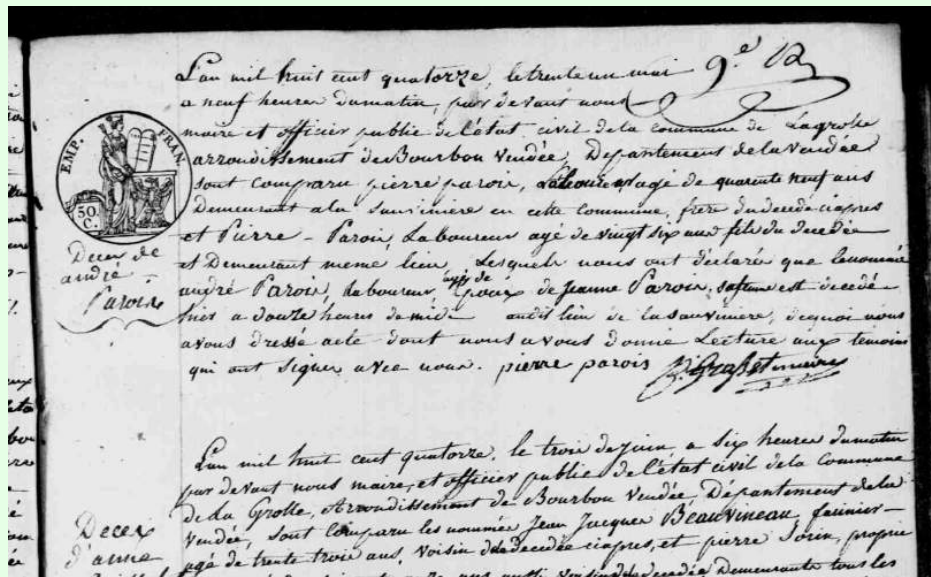 9.e
L'an mil huit cent quatorze, le trente un mai
a neuf heures du matin, par devant nous
maire et officier public de l'état civil de la commune de Lagrolle
arrondissement de Bourbon vendée, Département de la vendée
sont comparu pierre parois, Laboureur agé de quarente neuf ans
Demeurant a la Sauviniere en cette commune, frere du decedé ciapres
et Pierre - Parois, Laboureur agé de vingt six ans fils du decedée
et Demeurant meme lieu Lesquels nous ont déclaré que le nommé
andré Parois, Laboureur Epoux de Jeanne Parois, est decedé
hier a douze heures de midi audit lieu de la sauviniere, de quoi nous
avons dressé acte dont nous avons donné Lecture aux temoins
qui ont signer avec nous. pierre parois maire
EMP. FRAN.
50.
C.
Decex de
andré
Parois
L'an mil huit cent quatorze, le trois de juin, a six heures du matin
par devant nous maire, et officier public de l'état civil de la Commune
de La Grolle, Arrondissement de Bourbon Vendée, Département de la
Vendée, sont comparu les nommés Jean Jacques Beauvineau, farinier
agé de trente trois ans, voisin de la decedée ciapres, et pierre Sorin, propri
Decex
d'anne